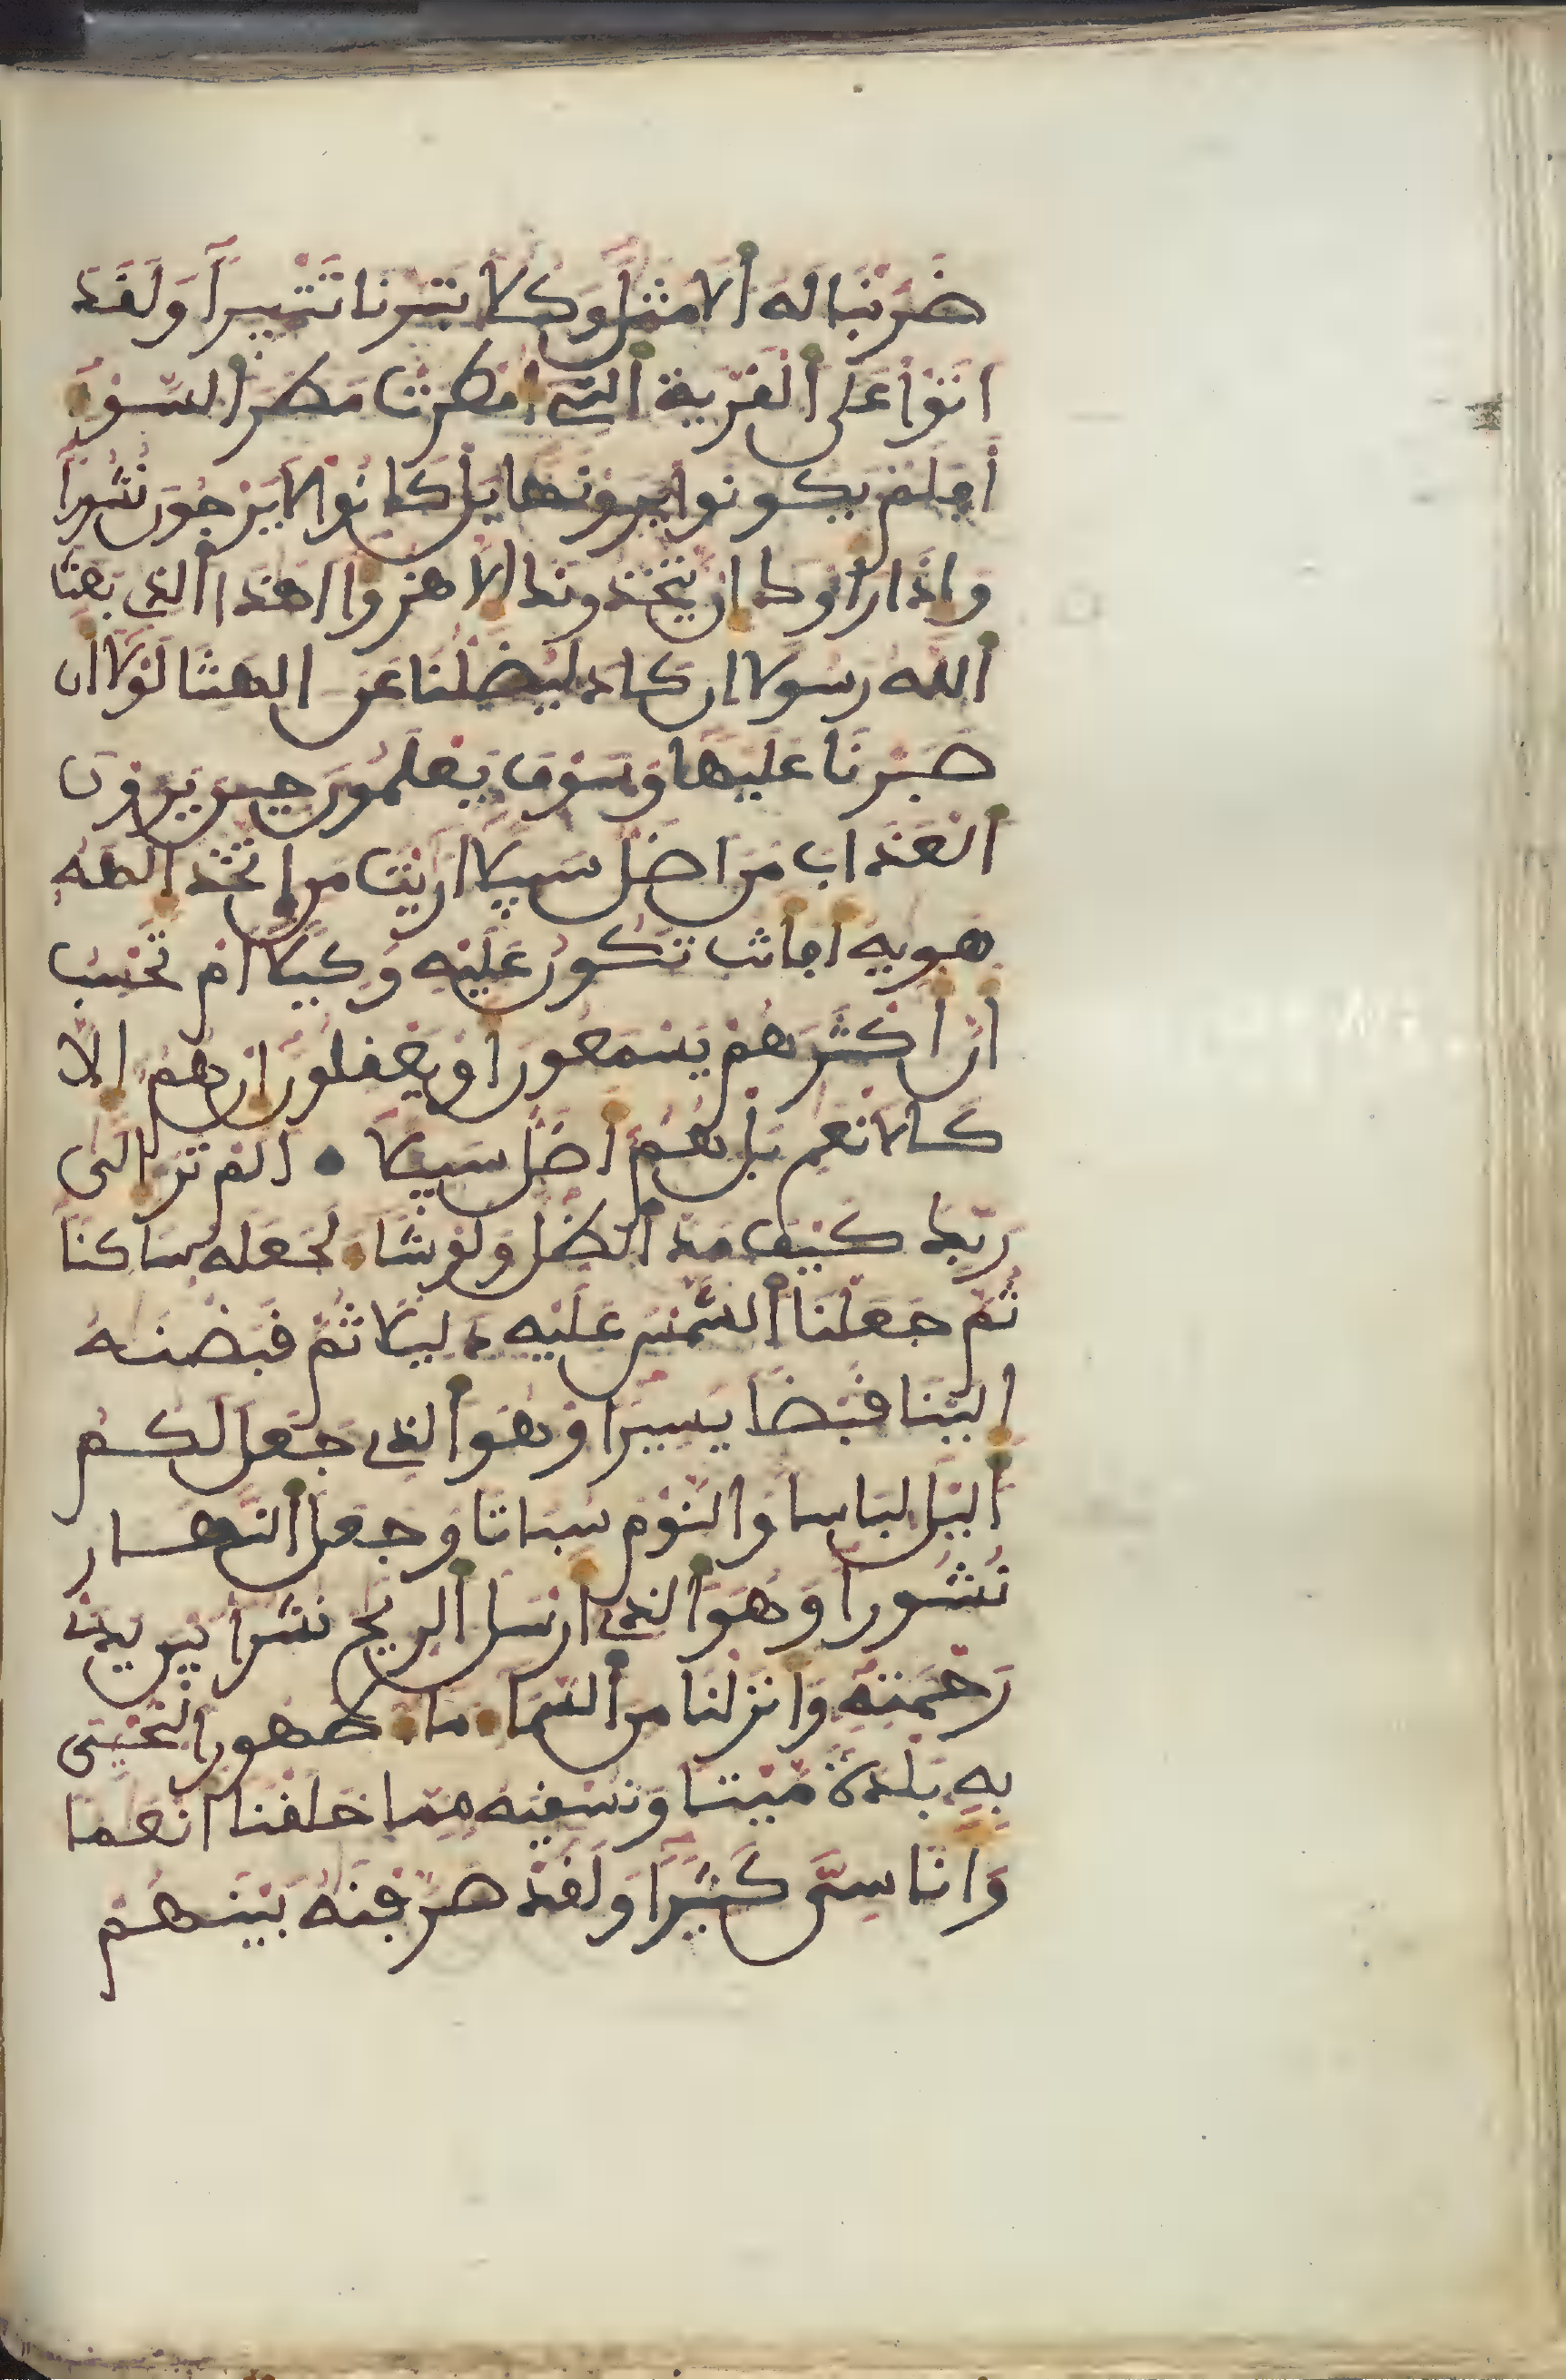 ضَرَبْنَا لَهُ ٱلَامْثَٰلَ وَكُلّا تَبَّرْنَا تَتْبِيراً وَلَقَدَ
اتَوْا عَلَى ٱلْقَرْيَةِ ٱلتِے أُمْطِرَتْ مَطَرَ ٱلسَّوْءِ
أَفَلَمْ يَكُونُوا يَرَوْنَهَا بَلْ كَانُوا لَا يَرْجُونَ نُشُوراً
وَإِذَا رَأَوْكَ إِنْ يَّتَّخِذُونَكَ إِلَّا هُزُؤاً اهَٰذَا ٱلذِے بَعَثَ
ٱللَّهُ رَسُولاً إِن كَادَ لَيُضِلُّنَا عَنَ الِهَتِنَا لَوْلَا أَن
صَبَرْنَا عَلَيْهَا وَسَوْفَ يَعْلَمُونَ حِينَ يَرَوْنَ
ٱلْعَذَابَ مَنَ اضَلُّ سَبِيلاً ارَٰيْتَ مَنِ اتَّخَذَ إِلَٰهَهُ
هَوِيٰهُ أَفَأَنتَ تَكُونُ عَلَيْهِ وَكِيلاً امْ تَحْسِبُ
أَنَّ أَكْثَرَهُمْ يَسْمَعُونَ أَوْ يَعْقِلُونَ إِنْ هُمُ إِلَّا
كَالَانْعَٰمِ بَلْ هُمُ أَضَلُّ سَبِيلاً ۝ اَلَمْ تَرَ إِلَىٰ
رَبِّكَ كَيْفَ مَدَّ ٱلظِّلَّ وَلَوْ شَاءَ لَجَعَلَهُ سَاكِناً
ثُمَّ جَعَلْنَا ٱلشَّمْسَ عَلَيْهِ دَلِيلاً ثُمَّ قَبَضْنَٰهُ
إِلَيْنَا قَبْضاً يَسِيراً وَهُوَ ٱلذِے جَعَلَ لَكُمُ
ٱلَّيْلَ لِبَاساً وَالنَّوْمَ سُبَاتاً وَجَعَلَ ٱلنَّهَارَ
نُشُوراً وَهُوَ ٱلذِے أَرْسَلَ ٱلرِّيَٰحَ نُشُراً بَيْنَ يَدَيْ
رَحْمَتِهِ وَأَنزَلْنَا مِنَ ٱلسَّمَاءِ مَاءً طَهُوراً لِّنُحْيِيَ
بِهِ بَلْدَةً مَّيْتاً وَنُسْقِيَهُ مِمَّا خَلَقْنَا أَنْعَٰماً
وَأَنَاسِيَّ كَثِيراً وَلَقَدْ صَرَّفْنَٰهُ بَيْنَهُمْ